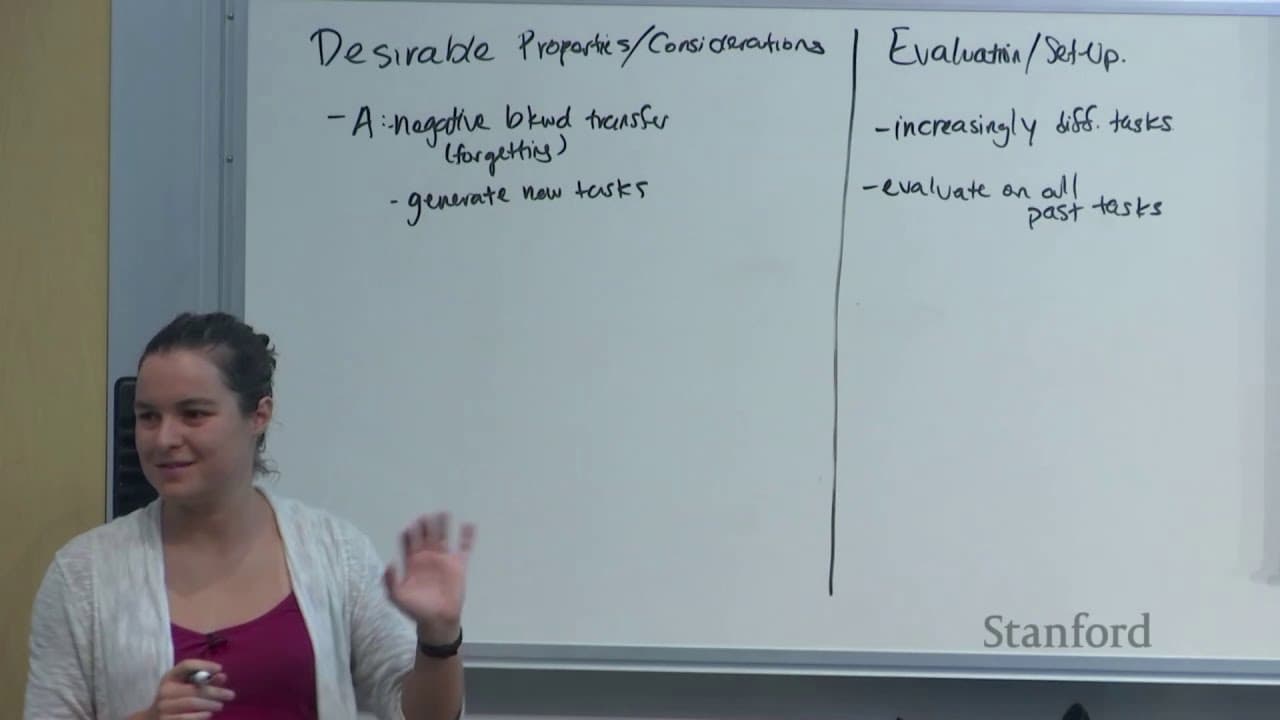 Desirable Properties/Considerations
- A: -negative bkwd transfer
(forgetting)
- generate new tasks
Evaluation/Set-Up.
- increasingly diff. tasks
- evaluate on all
past tasks
Stanford